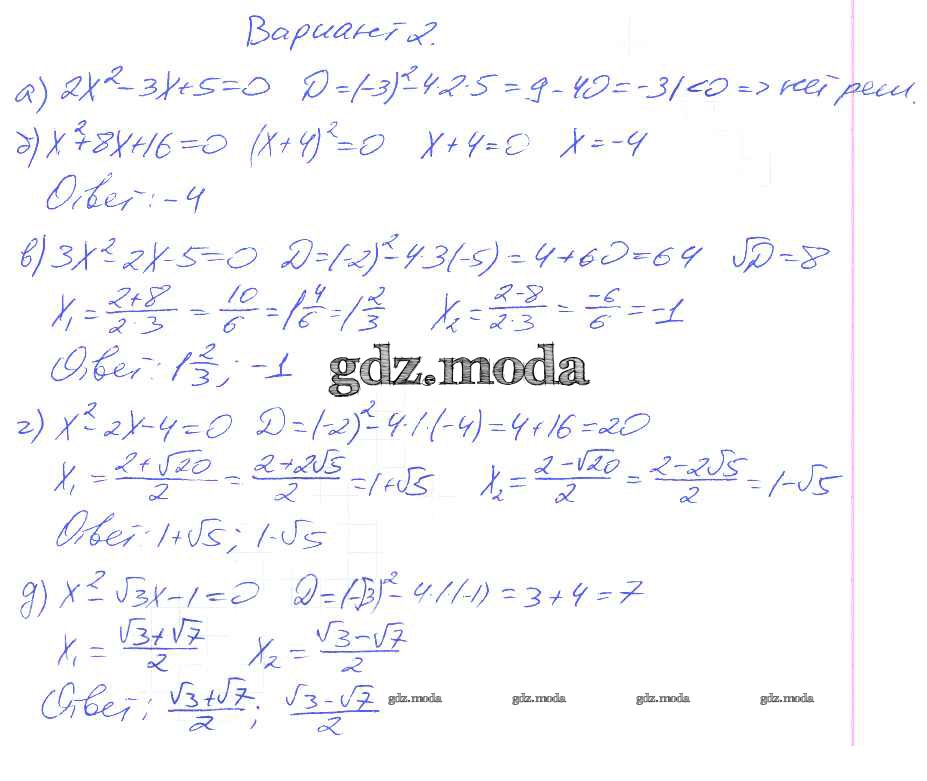 Вариант 2.
а) 2x² - 3x + 5 = 0 D = (-3)² - 4·2·5 = 9 - 40 = -31 < 0 => нет реш.
б) x² + 8x + 16 = 0 (x + 4)² = 0 x + 4 = 0 x = -4
Ответ: -4
в) 3x² - 2x - 5 = 0 D = (-2)² - 4·3(-5) = 4 + 60 = 64 √D = 8
x₁ = (2+8)/(2·3) = 10/6 = 1 4/6 = 1 2/3 x₂ = (2-8)/(2·3) = -6/6 = -1
Ответ: 1 2/3; -1
gdz.moda
г) x² - 2x - 4 = 0 D = (-2)² - 4·1·(-4) = 4 + 16 = 20
x₁ = (2+√20)/2 = (2+2√5)/2 = 1+√5 x₂ = (2-√20)/2 = (2-2√5)/2 = 1-√5
Ответ: 1+√5; 1-√5
д) x² - √3x - 1 = 0 D = (-√3)² - 4·1·(-1) = 3 + 4 = 7
x₁ = (√3+√7)/2 x₂ = (√3-√7)/2
Ответ: (√3+√7)/2; (√3-√7)/2 gdz.moda gdz.moda gdz.moda gdz.moda